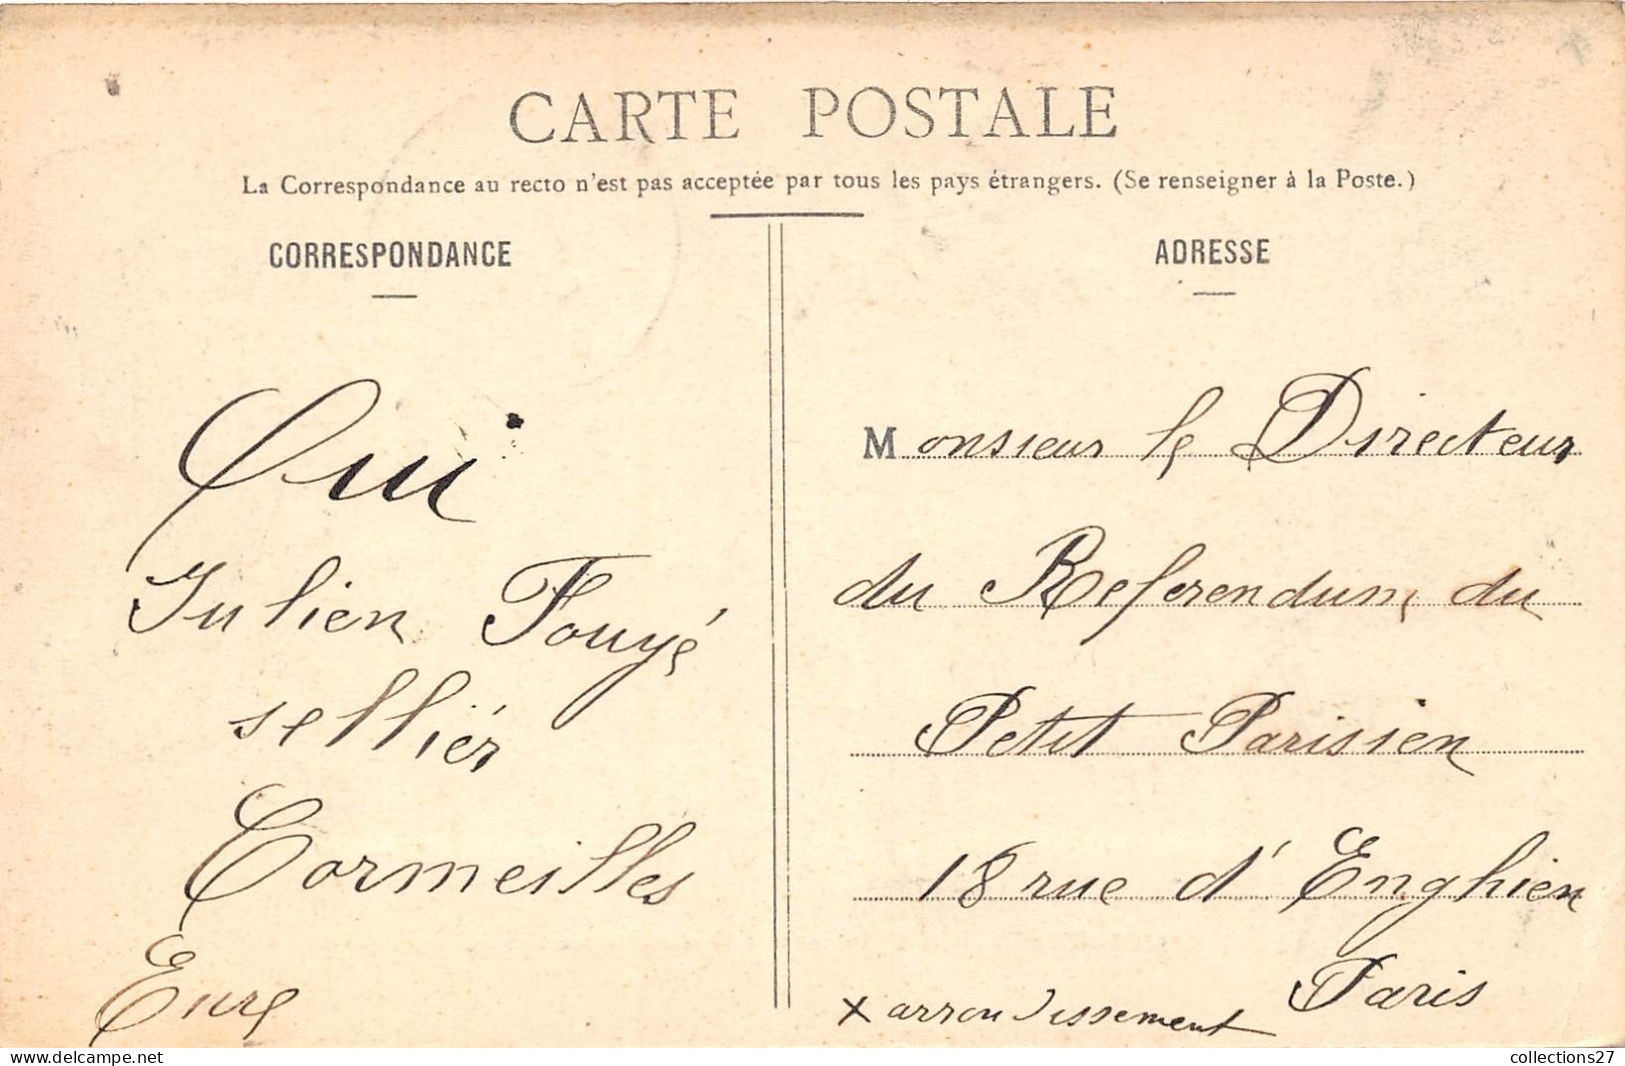 CARTE POSTALE
La Correspondance au recto n'est pas acceptée par tous les pays étrangers. (Se renseigner à la Poste.)
CORRESPONDANCE
Oui
Julien Fouyé
sellier
Cormeilles
Eure
ADRESSE
Monsieur le Directeur
du Referendum du
Petit Parisien
18 rue d'Enghien
Paris
X arrondissement
collections27